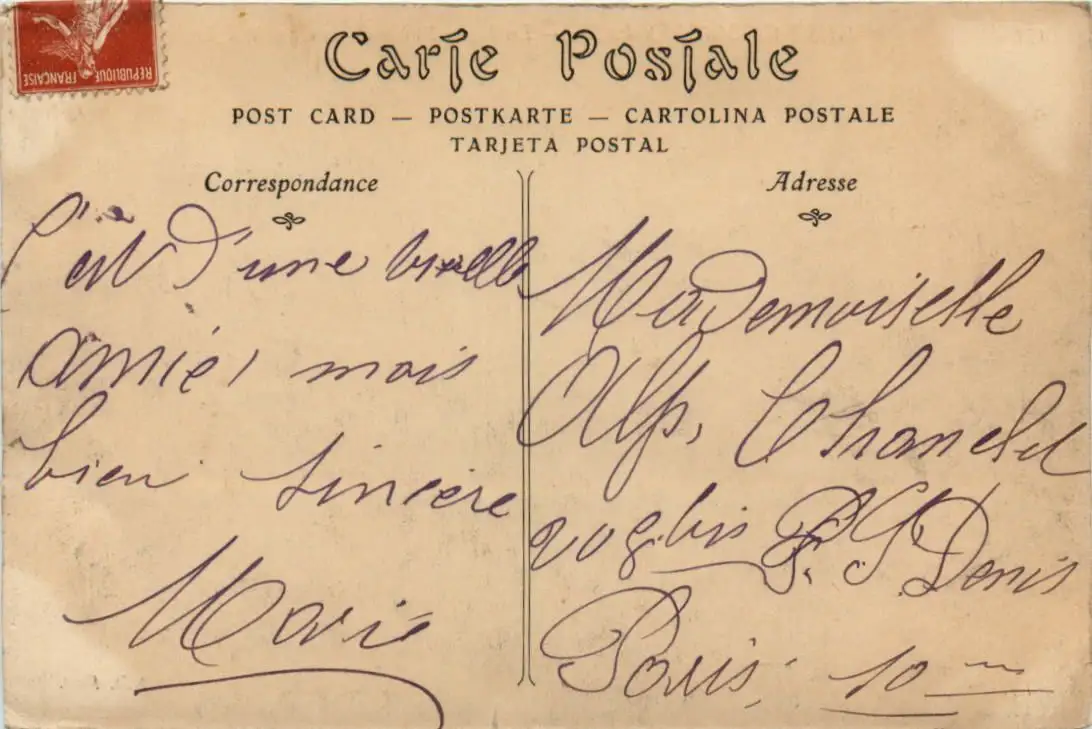 REPUBLIQUE FRANÇAISE
Carte Postale
POST CARD — POSTKARTE — CARTOLINA POSTALE
TARJETA POSTAL
Correspondance
C'est d'une
amie, mais
bien sincère
Marie
Adresse
Mademoiselle
Alp.
bis F. S Denis
Paris, 10